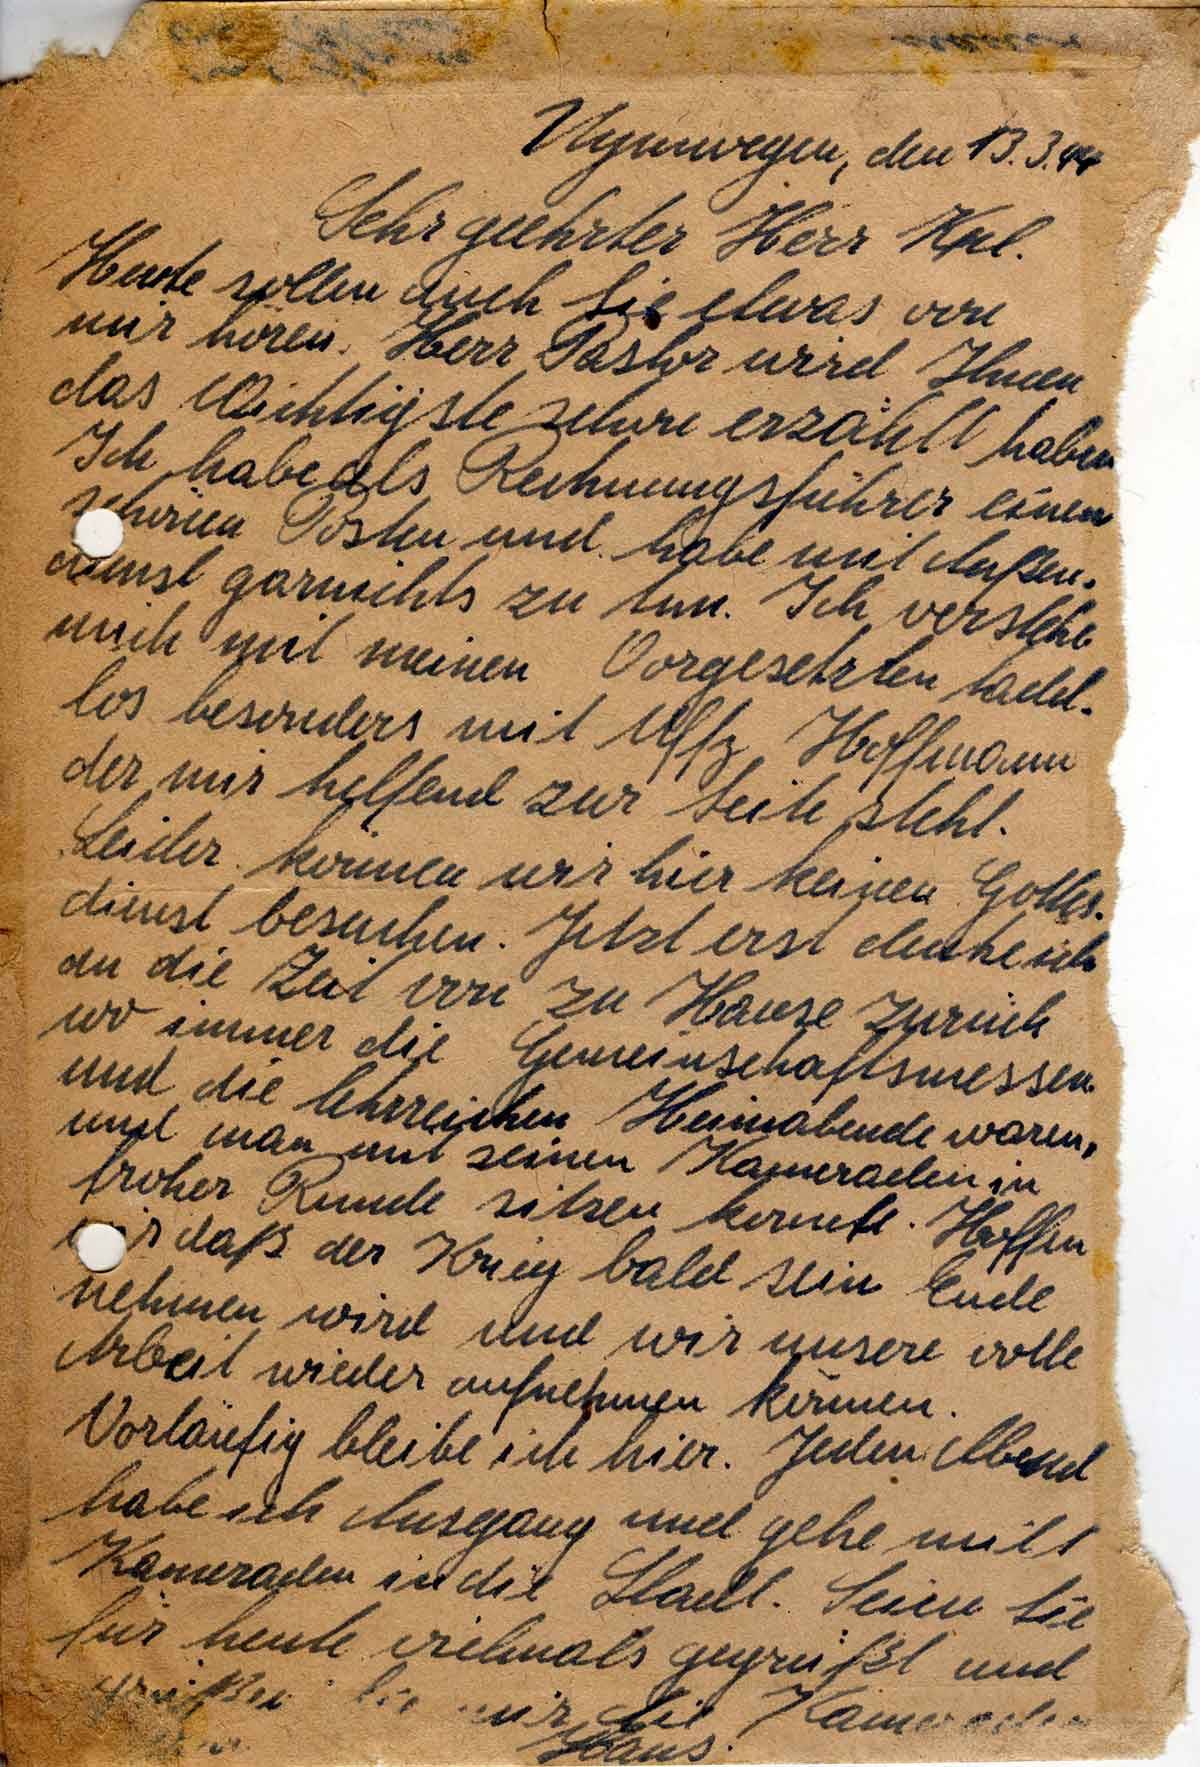 Nymwegen, den 13.3.44
Sehr geehrter Herr Kpl.
Heute sollen auch Sie etwas von
mir hören. Herr Pastor wird Ihnen
das Wichtigste schon erzählt haben
Ich habe als Rechnungsführer einen
schönen Posten und habe mit Außen-
dienst garnichts zu tun. Ich verstehe
mich mit meinen Vorgesetzten tadel-
los besonders mit Uffz Hoffmann
der mir helfend zur Seite steht.
Leider können wir hier keinen Gottes-
dienst besuchen. Jetzt erst denke ich
an die Zeit von zu Hause zurück
wo immer die Gemeinschaftsmessen
und die lehrreichen Heimabende waren,
und man mit seinen Kameraden in
froher Runde sitzen konnte. Hoffen
wir daß der Krieg bald sein Ende
nehmen wird und wir unsere volle
Arbeit wieder aufnehmen können.
Vorläufig bleibe ich hier. Jeden Abend
habe ich Ausgang und gehe mit
Kameraden in die Stadt. Seien Sie
für heute vielmals gegrüßt und
grüßen Sie mir die Kameraden
Hans.